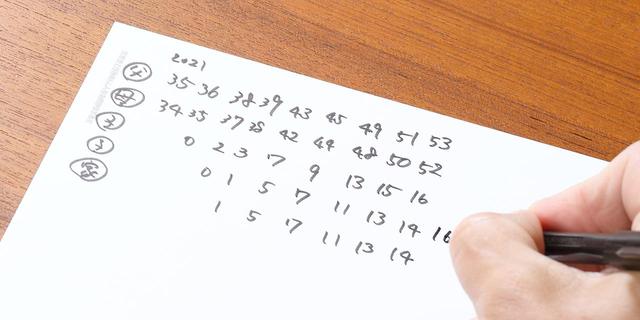 2021
父 35 36 38 39 43 45 49 51 53
母 34 35 37 38 42 44 48 50 52
子 0 2 3 7 9 13 15 16
子 0 1 5 7 11 13 14 16
家 1 5 7 11 13 14